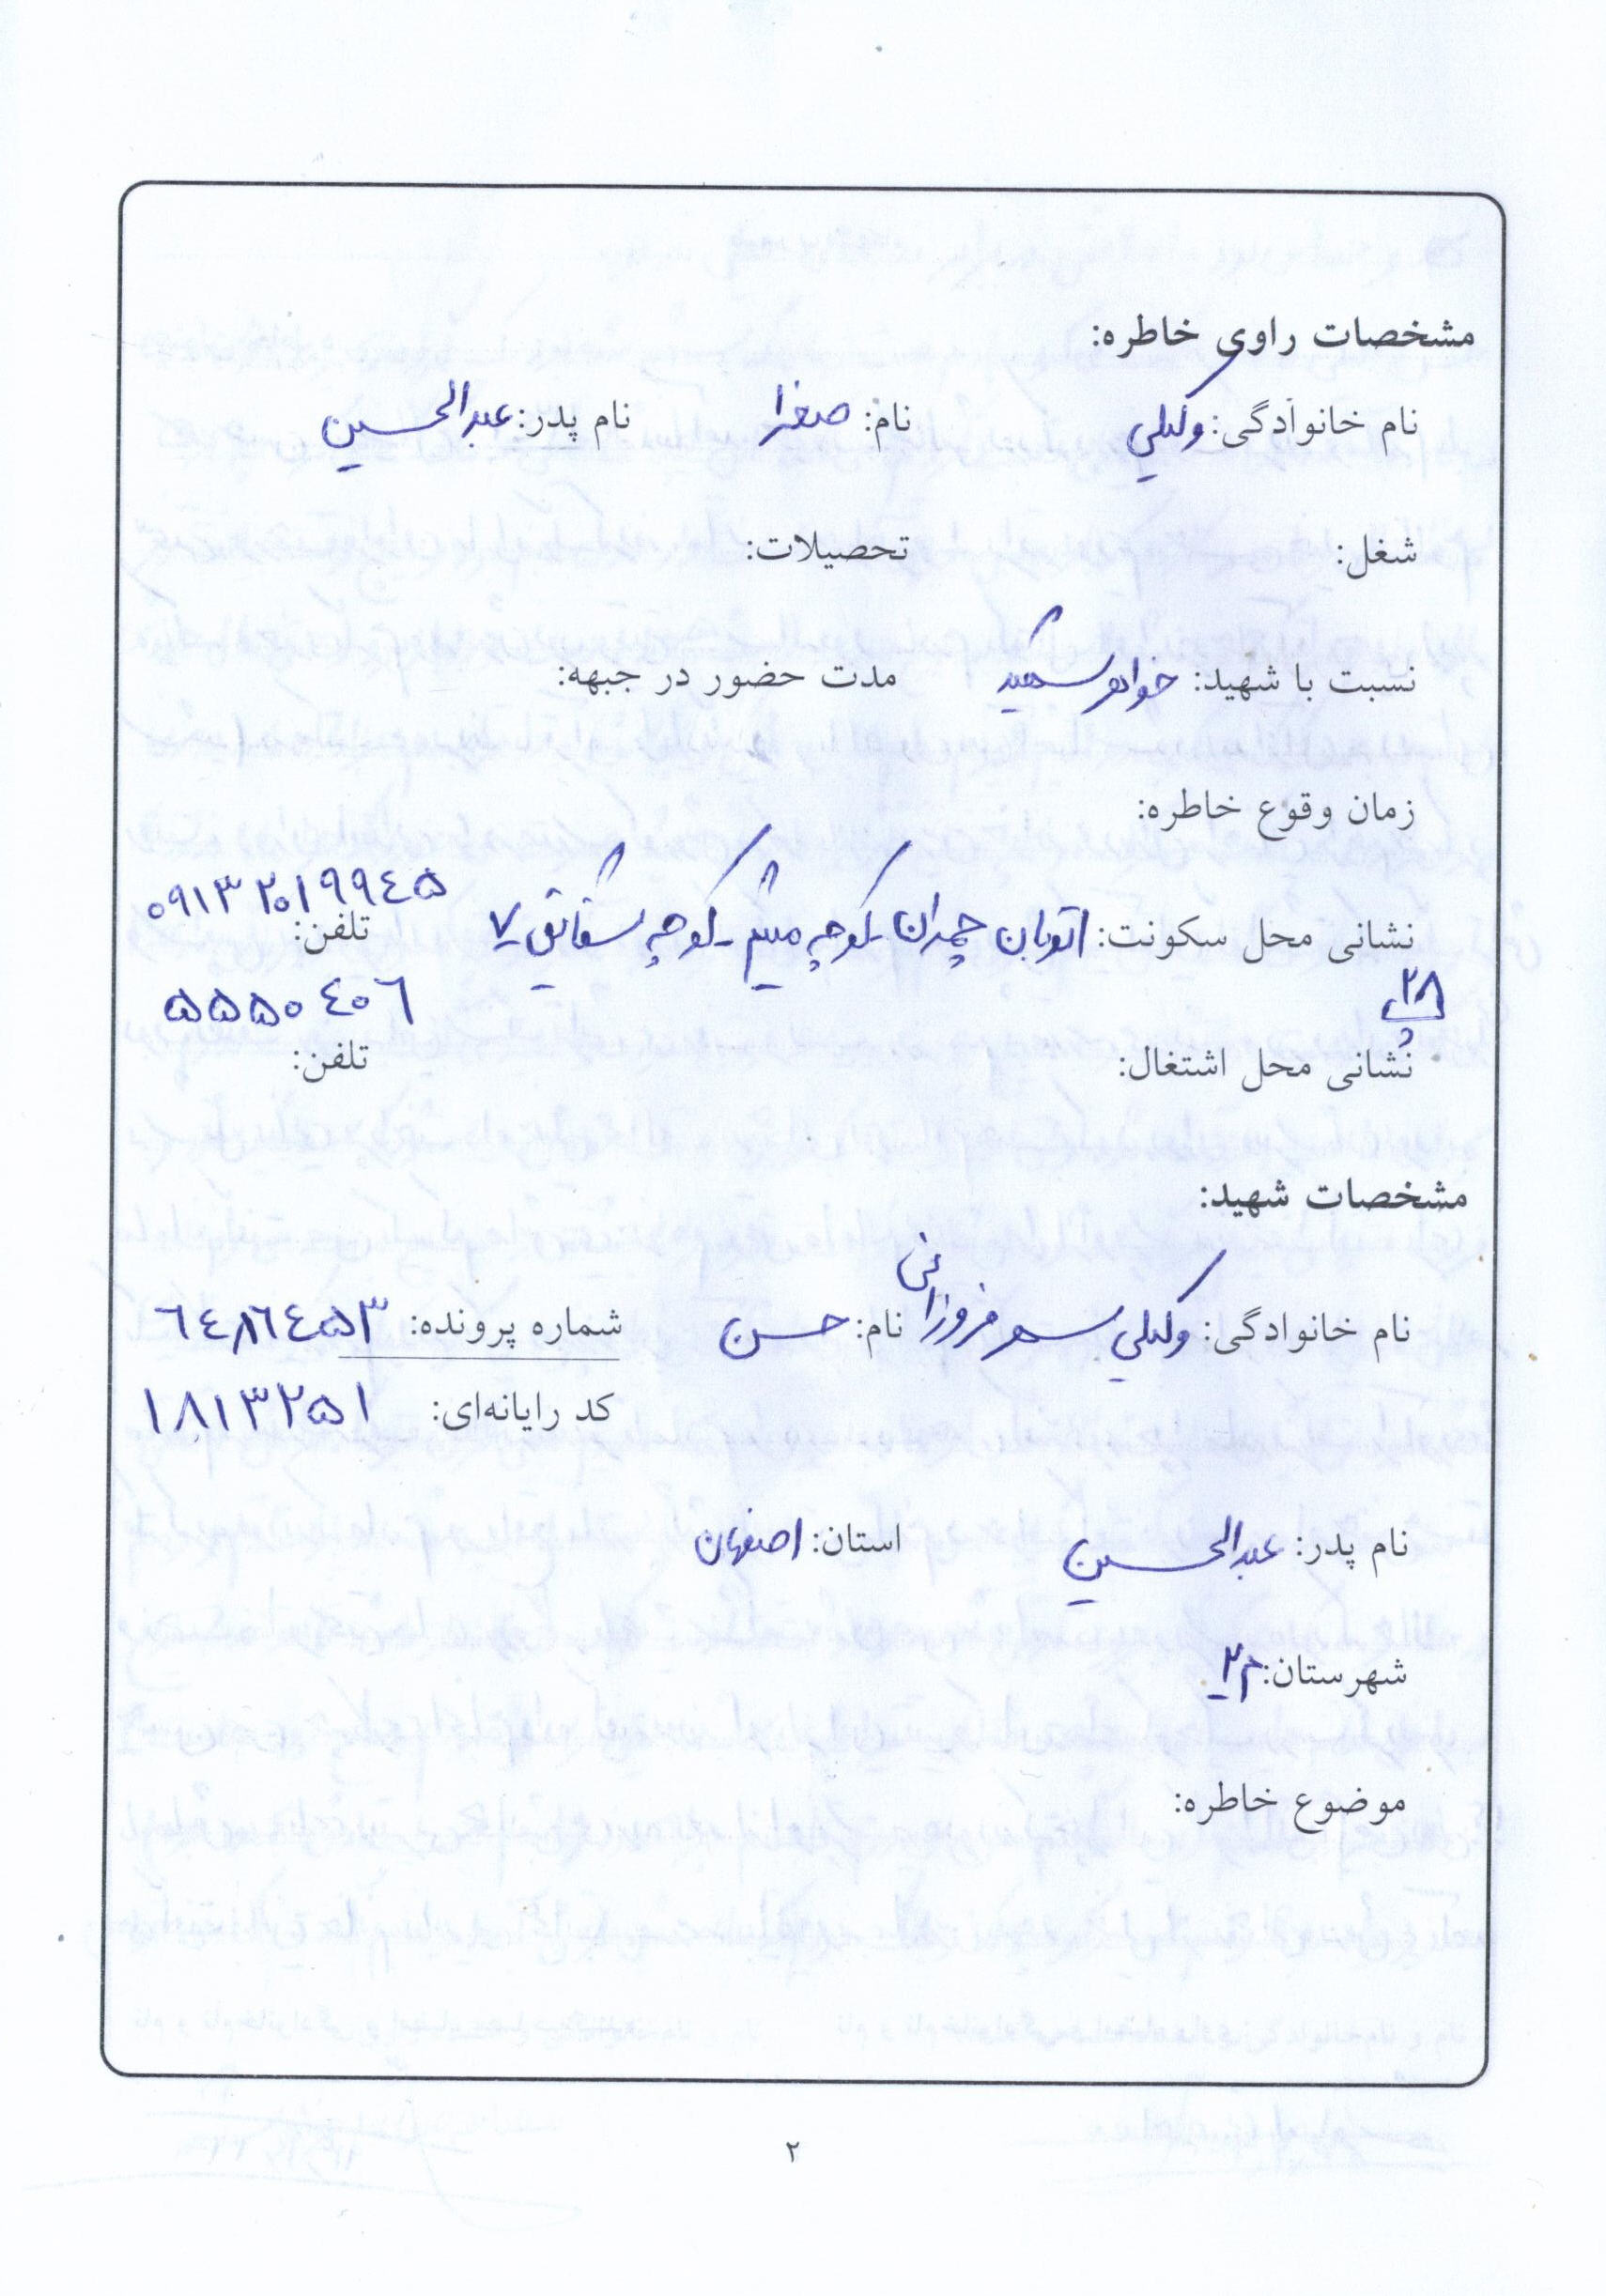 مشخصات راوی خاطره:
نام خانوادگی: وکیلی نام: صغرا نام پدر: عبدالحسین
شغل: تحصیلات:
نسبت با شهید: خواهر شهید مدت حضور در جبهه:
زمان وقوع خاطره:
نشانی محل سکونت: اتوبان چمران - کوچه میثم - کوچه شقایق ۷ تلفن: ۰۹۱۳۲۰۱۹۹۴۵
پ ۲۸ ۵۵۵۰۴۰۶
نشانی محل اشتغال: تلفن:
مشخصات شهید:
نام خانوادگی: وکیلی سهرفروزانی نام: حسن شماره پرونده: ۶۴۸۶۴۵۳
کد رایانه‌ای: ۱۸۱۳۲۵۱
نام پدر: عبدالحسین استان: اصفهان
شهرستان: م۲
موضوع خاطره:
۲